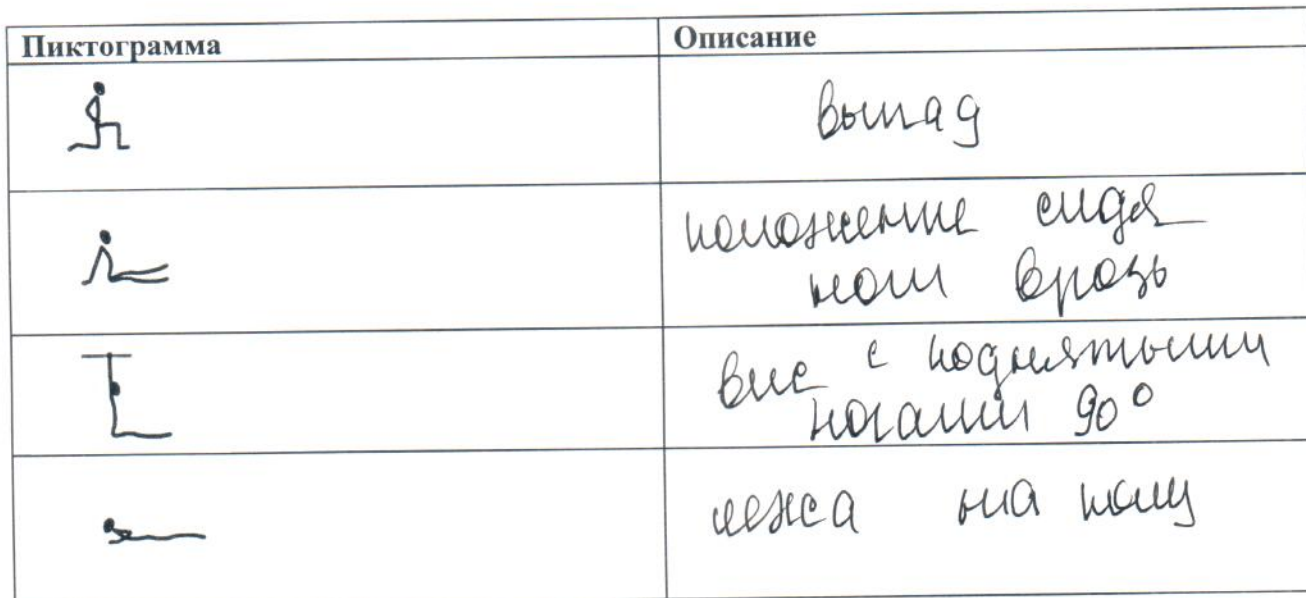 Пиктограмма Описание
выпад
положение сидя
ноги врозь
вис с поднятыми
ногами 90°
лежа на полу